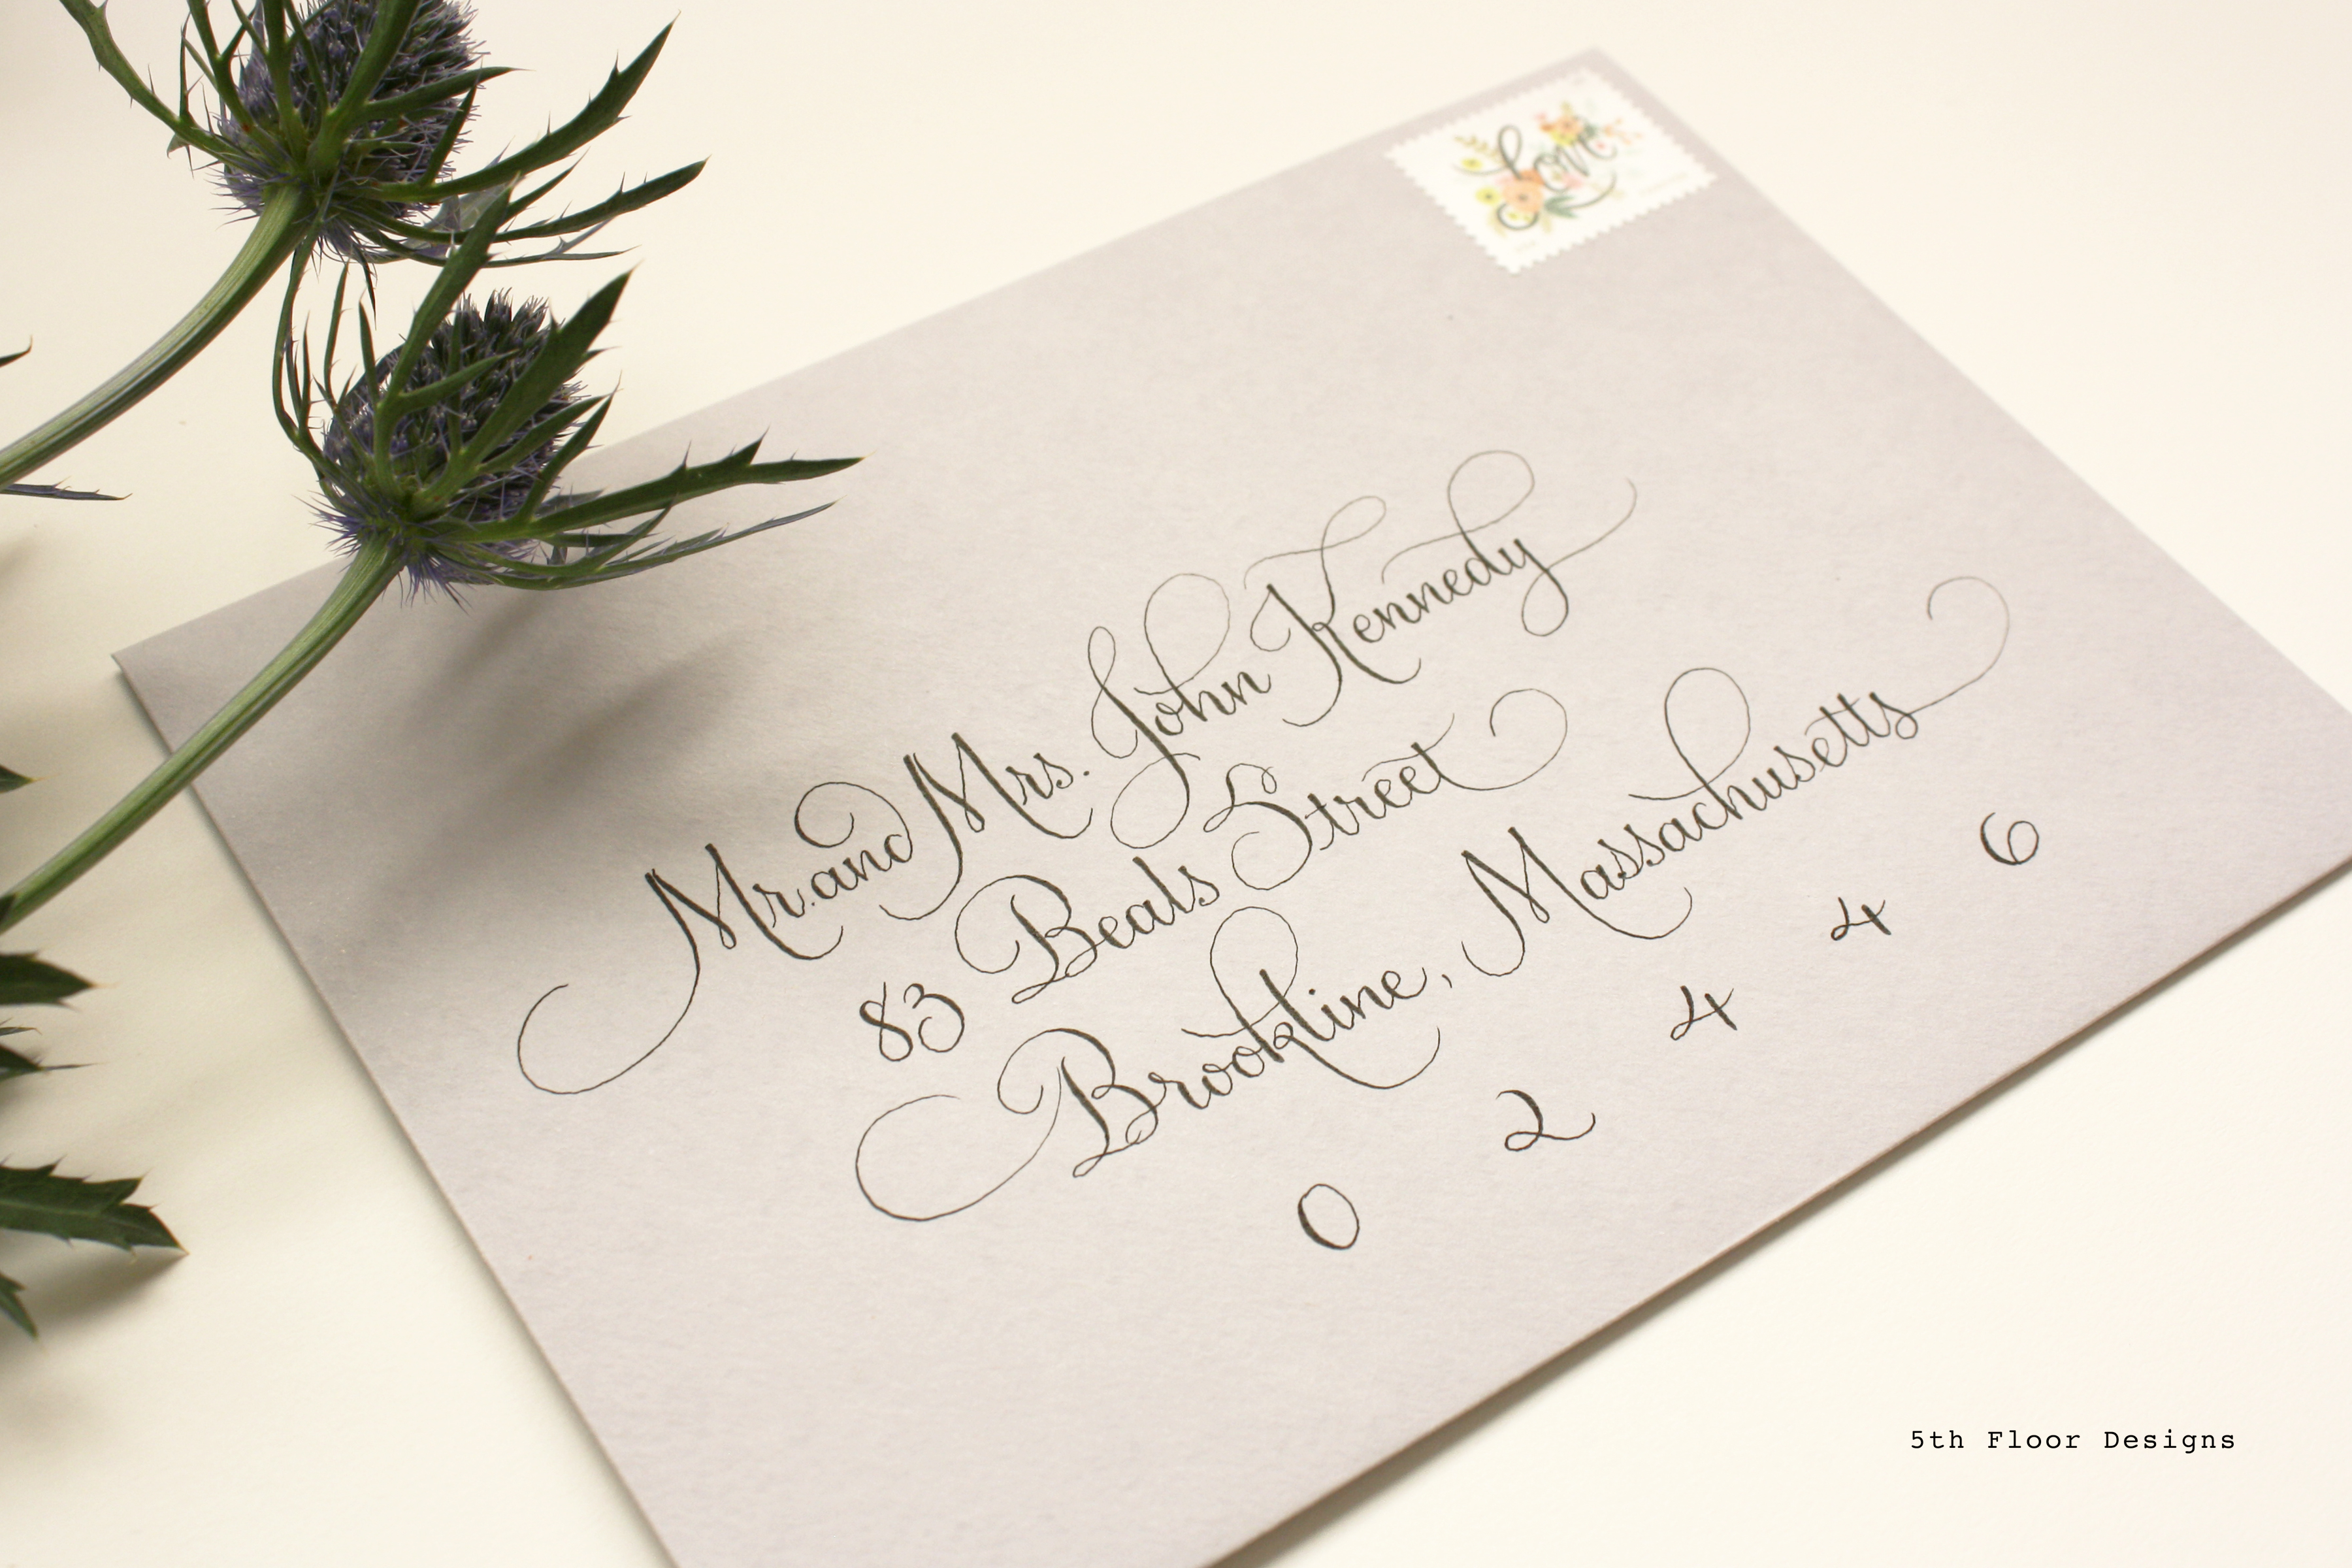 Love
Mr. and Mrs. John Kennedy
83 Beals Street
Brookline, Massachusetts
0 2 4 4 6
5th Floor Designs